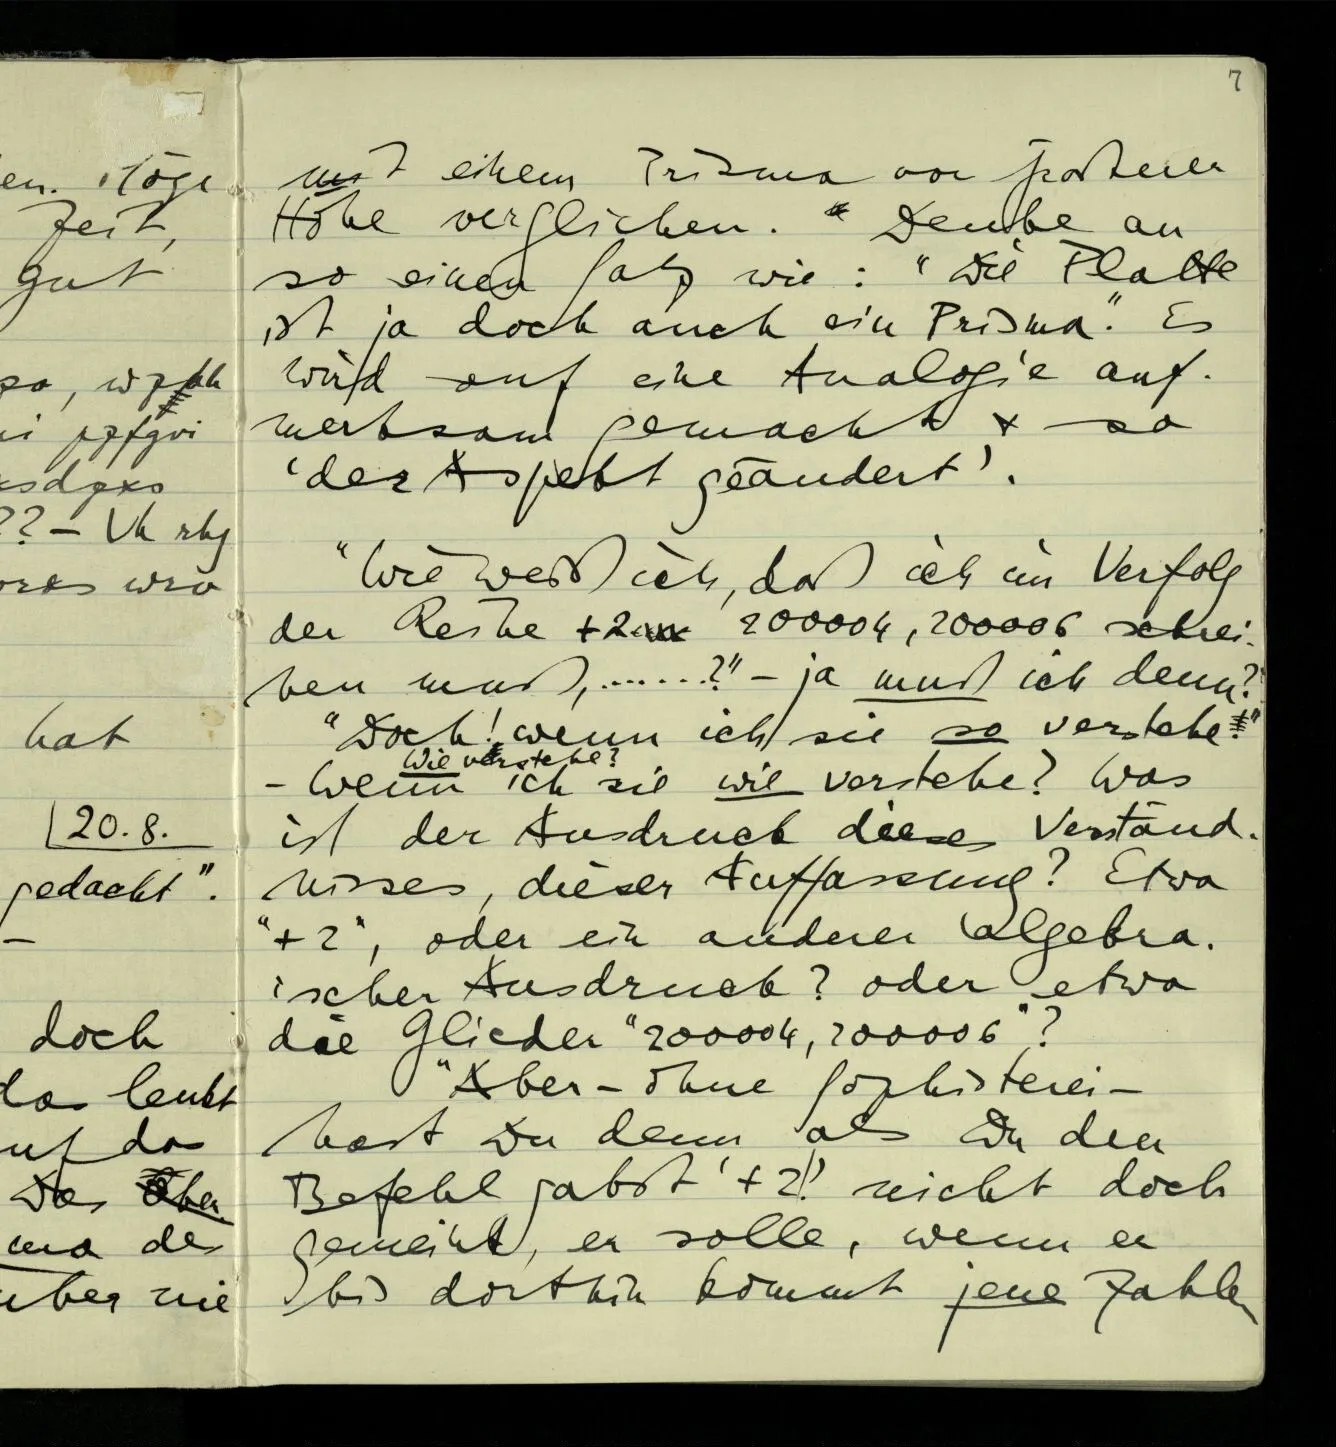 7
en. Möge
Zeit,
gut
so, wzkh
ni pzfgvi
xsdgxs
?? – Vh rhg
orxs wrv
hat
20.8.
gedacht".
–
doch
das lenkt
auf das
Das Über
ma des
über nie
mit einem Prisma von größerer
Höhe verglichen. " Denke an
so einen Satz wie: "Die Platte
ist ja doch auch ein Prisma." Es
wird auf eine Analogie auf-
merksam gemacht & so
'der Aspekt geändert'.
"Wie weiß ich, daß ich im Verfolg
der Reihe +2 200004, 200006 schrei-
ben muß, .......?" – ja muß ich denn?
"Doch! wenn ich sie so verstehe!"
Wie verstehe?
– Wenn ich sie wie verstehe? Was
ist der Ausdruck dieses Verständ-
nisses, dieser Auffassung? Etwa
"+2", oder ein anderer algebra-
ischer Ausdruck? oder etwa
die Glieder "200004, 200006"?
"Aber – ohne Sophisterei –
hast Du denn als Du den
Befehl gabst '+2!' nicht doch
gemeint, er solle, wenn er
bis dorthin kommt jene Zahlen